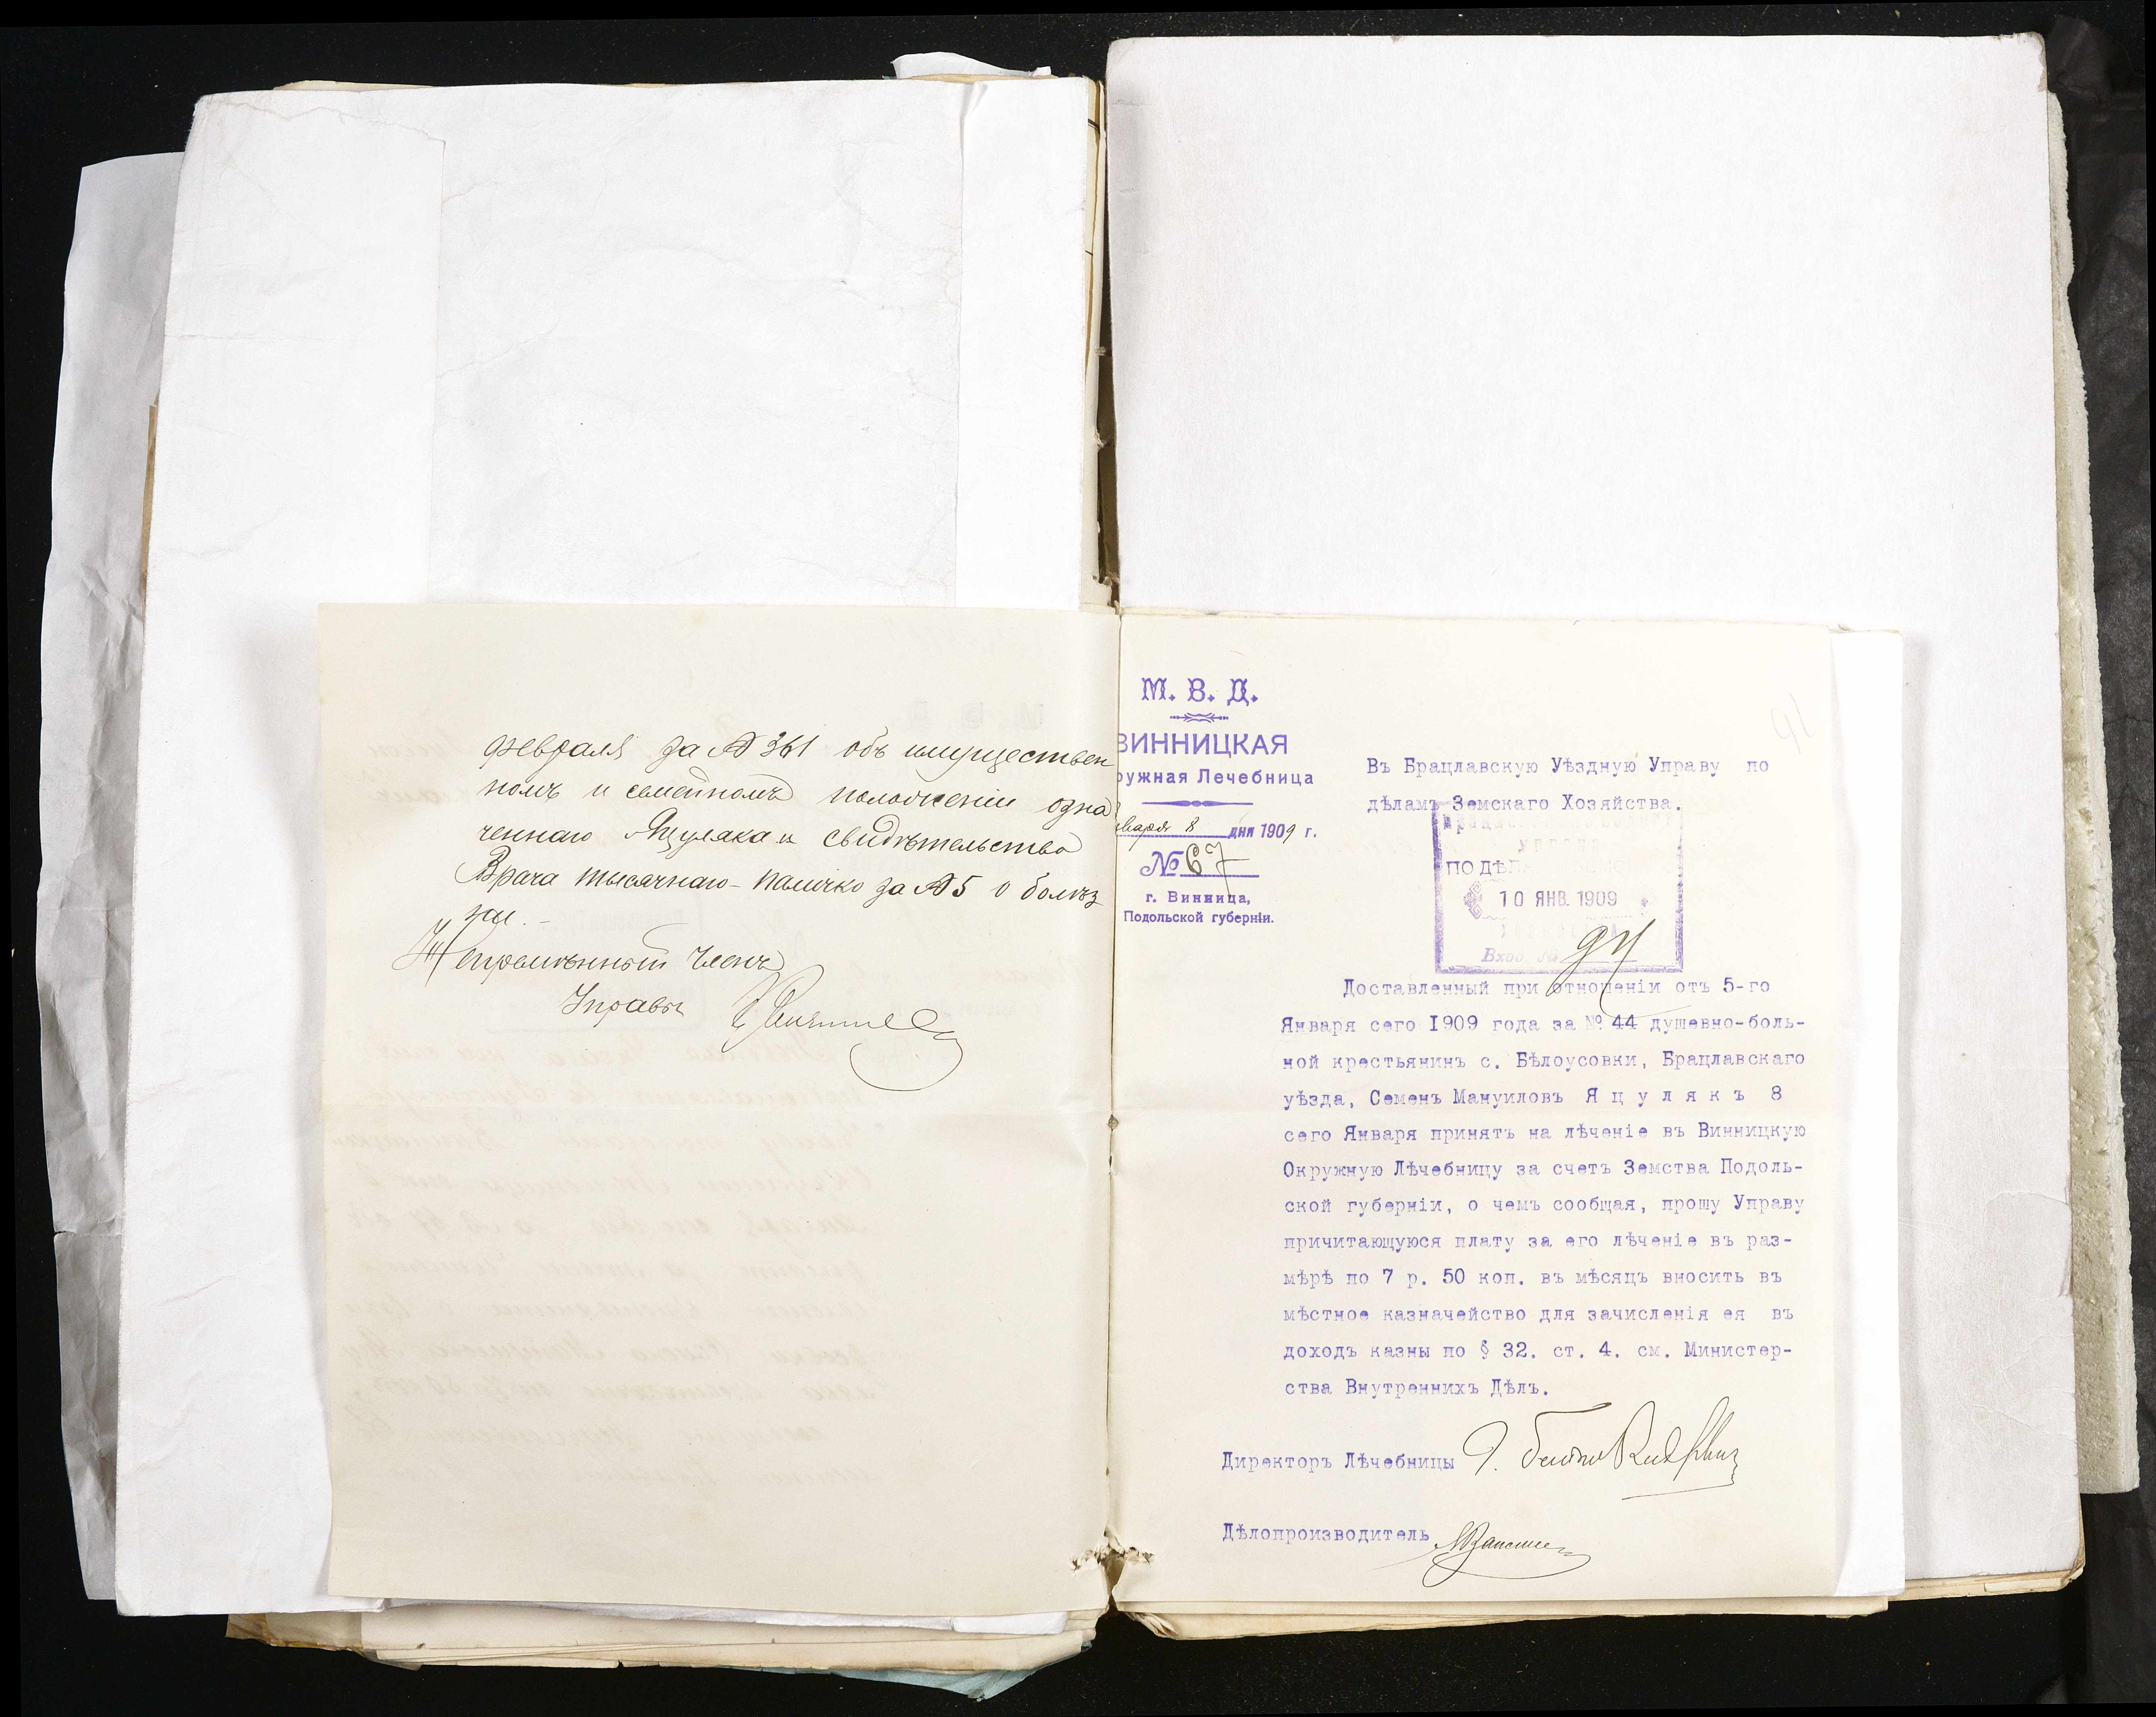 февраля за № 361 объ имуществен
номъ и семейномъ положеніи озна
ченнаго Яцуляка и свидѣтельство
Врача Тысячнаго-Паличко за № 5 о болѣз
ни. -
Непремѣнный Членъ
Управы
М. В. Д.
ВИННИЦКАЯ
ружная Лечебница
нваря 8 дня 1909 г.
№ 67
г. Винница,
Подольской губерніи.
91
Въ Брацлавскую Уѣздную Управу по
дѣламъ Земскаго Хозяйства.
УПРАВА
ПО ДѢЛ
10 ЯНВ. 1909
Вход. №
Доставленный при отношеніи отъ 5-го
Января сего 1909 года за № 44 душевно-боль-
ной крестьянинъ с. Бѣлоусовки, Брацлавскаго
уѣзда, Семенъ Мануиловъ Я ц у л я к ъ 8
сего Января принятъ на лѣченіе въ Винницкую
Окружную Лѣчебницу за счетъ Земства Подоль-
ской губерніи, о чемъ сообщая, прошу Управу
причитающуюся плату за его лѣченіе въ раз-
мѣрѣ по 7 р. 50 коп. въ мѣсяцъ вносить въ
мѣстное казначейство для зачисленія ея въ
доходъ казны по § 32. ст. 4. см. Министер-
ства Внутреннихъ Дѣлъ.
Директоръ Лѣчебницы
Дѣлопроизводитель